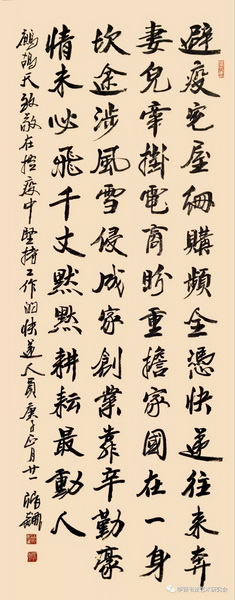 避疫宅屋網購頻全憑快遞往來奔
妻兒牽掛電商盼重擔家國在一身
坎途涉風雪侵成家創業靠辛勤豪
情未必飛千丈默默耕耘最動人
鷓鴣天致敬在控疫中堅持工作的快遞人員庚子正月廿一
书法艺术研究会